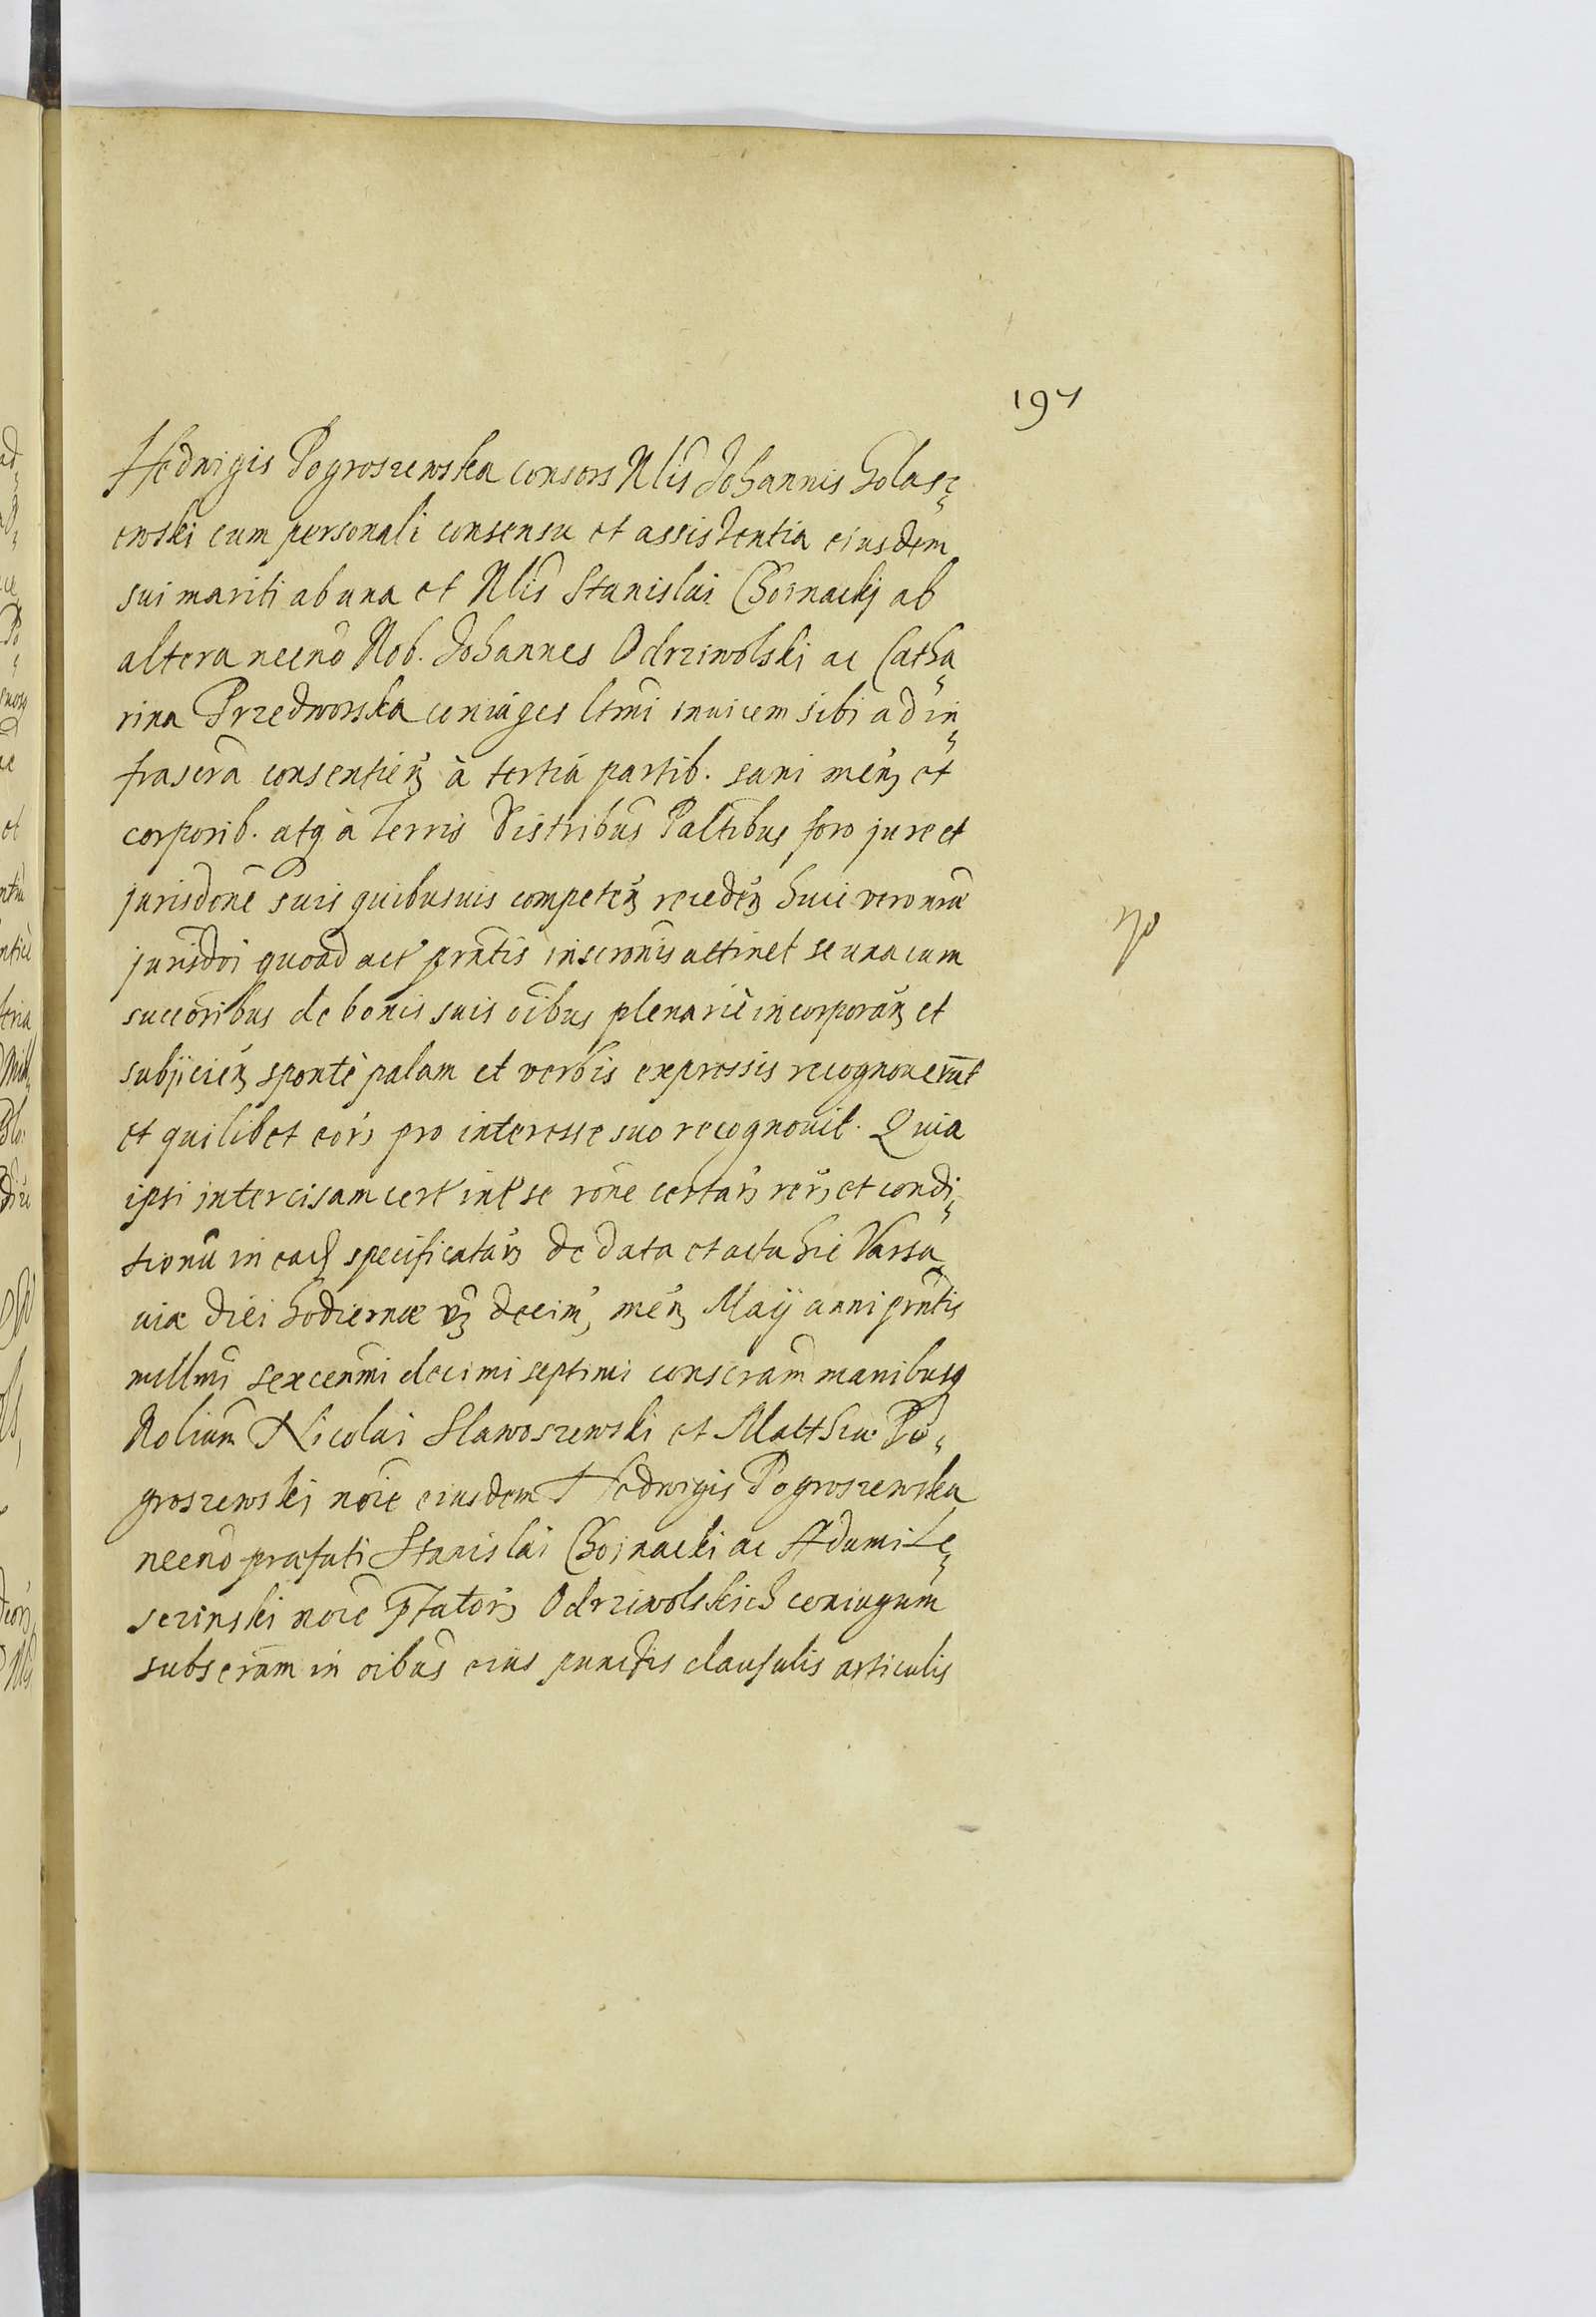 197
Hedwigis Pogroszewska consors Nlis Johannis Golasz¸
ewski cum personali consensu et assistentia eiusdem
sui mariti ab una et Nlis Stanislai Choinackj ab
altera necnō Nob. Johannes Odrziwolski ac Catha¸
rina Przedworska coniuges ltmi inuicem sibi ad in¸
frascrā consentień à tertia partib. sani meń et
corporib. atq à Terris Districtibus Paltibus foro jure et
jurisdone suis quibusuis competeń recedeń huic vero nrae
jurisdoi quoad act' prntis inscronis attinet se una cum
succoribus de bonis suis oibus plenariè incorporań et
subjicień spontè palam et verbis expressis recognouerūt
et quilibet eorʒ pro interesse suo recognouit. Quia
ipsi intercisam cert' int' se rōne certarʒ rerʒ et condi¸
tionū in ead specificatarʒ de data et acta hic Varsa¸
uiae diei hodiernae vʒ decim' meń Maij anni prntis
millmi sexcenmi decimi septimi conscram manibusq
Nolium Nicolai Slawoszewski et Matthiae Po¸
groszewskj noie eiusdem Hedwigis Pogroszewska
necnō praefati Stanislai Choinacki ac Adami Le¸
sczinski noie pfatorʒ Odrziwolskich coniugum
subscram in oibus eius punctis clausulis articulis